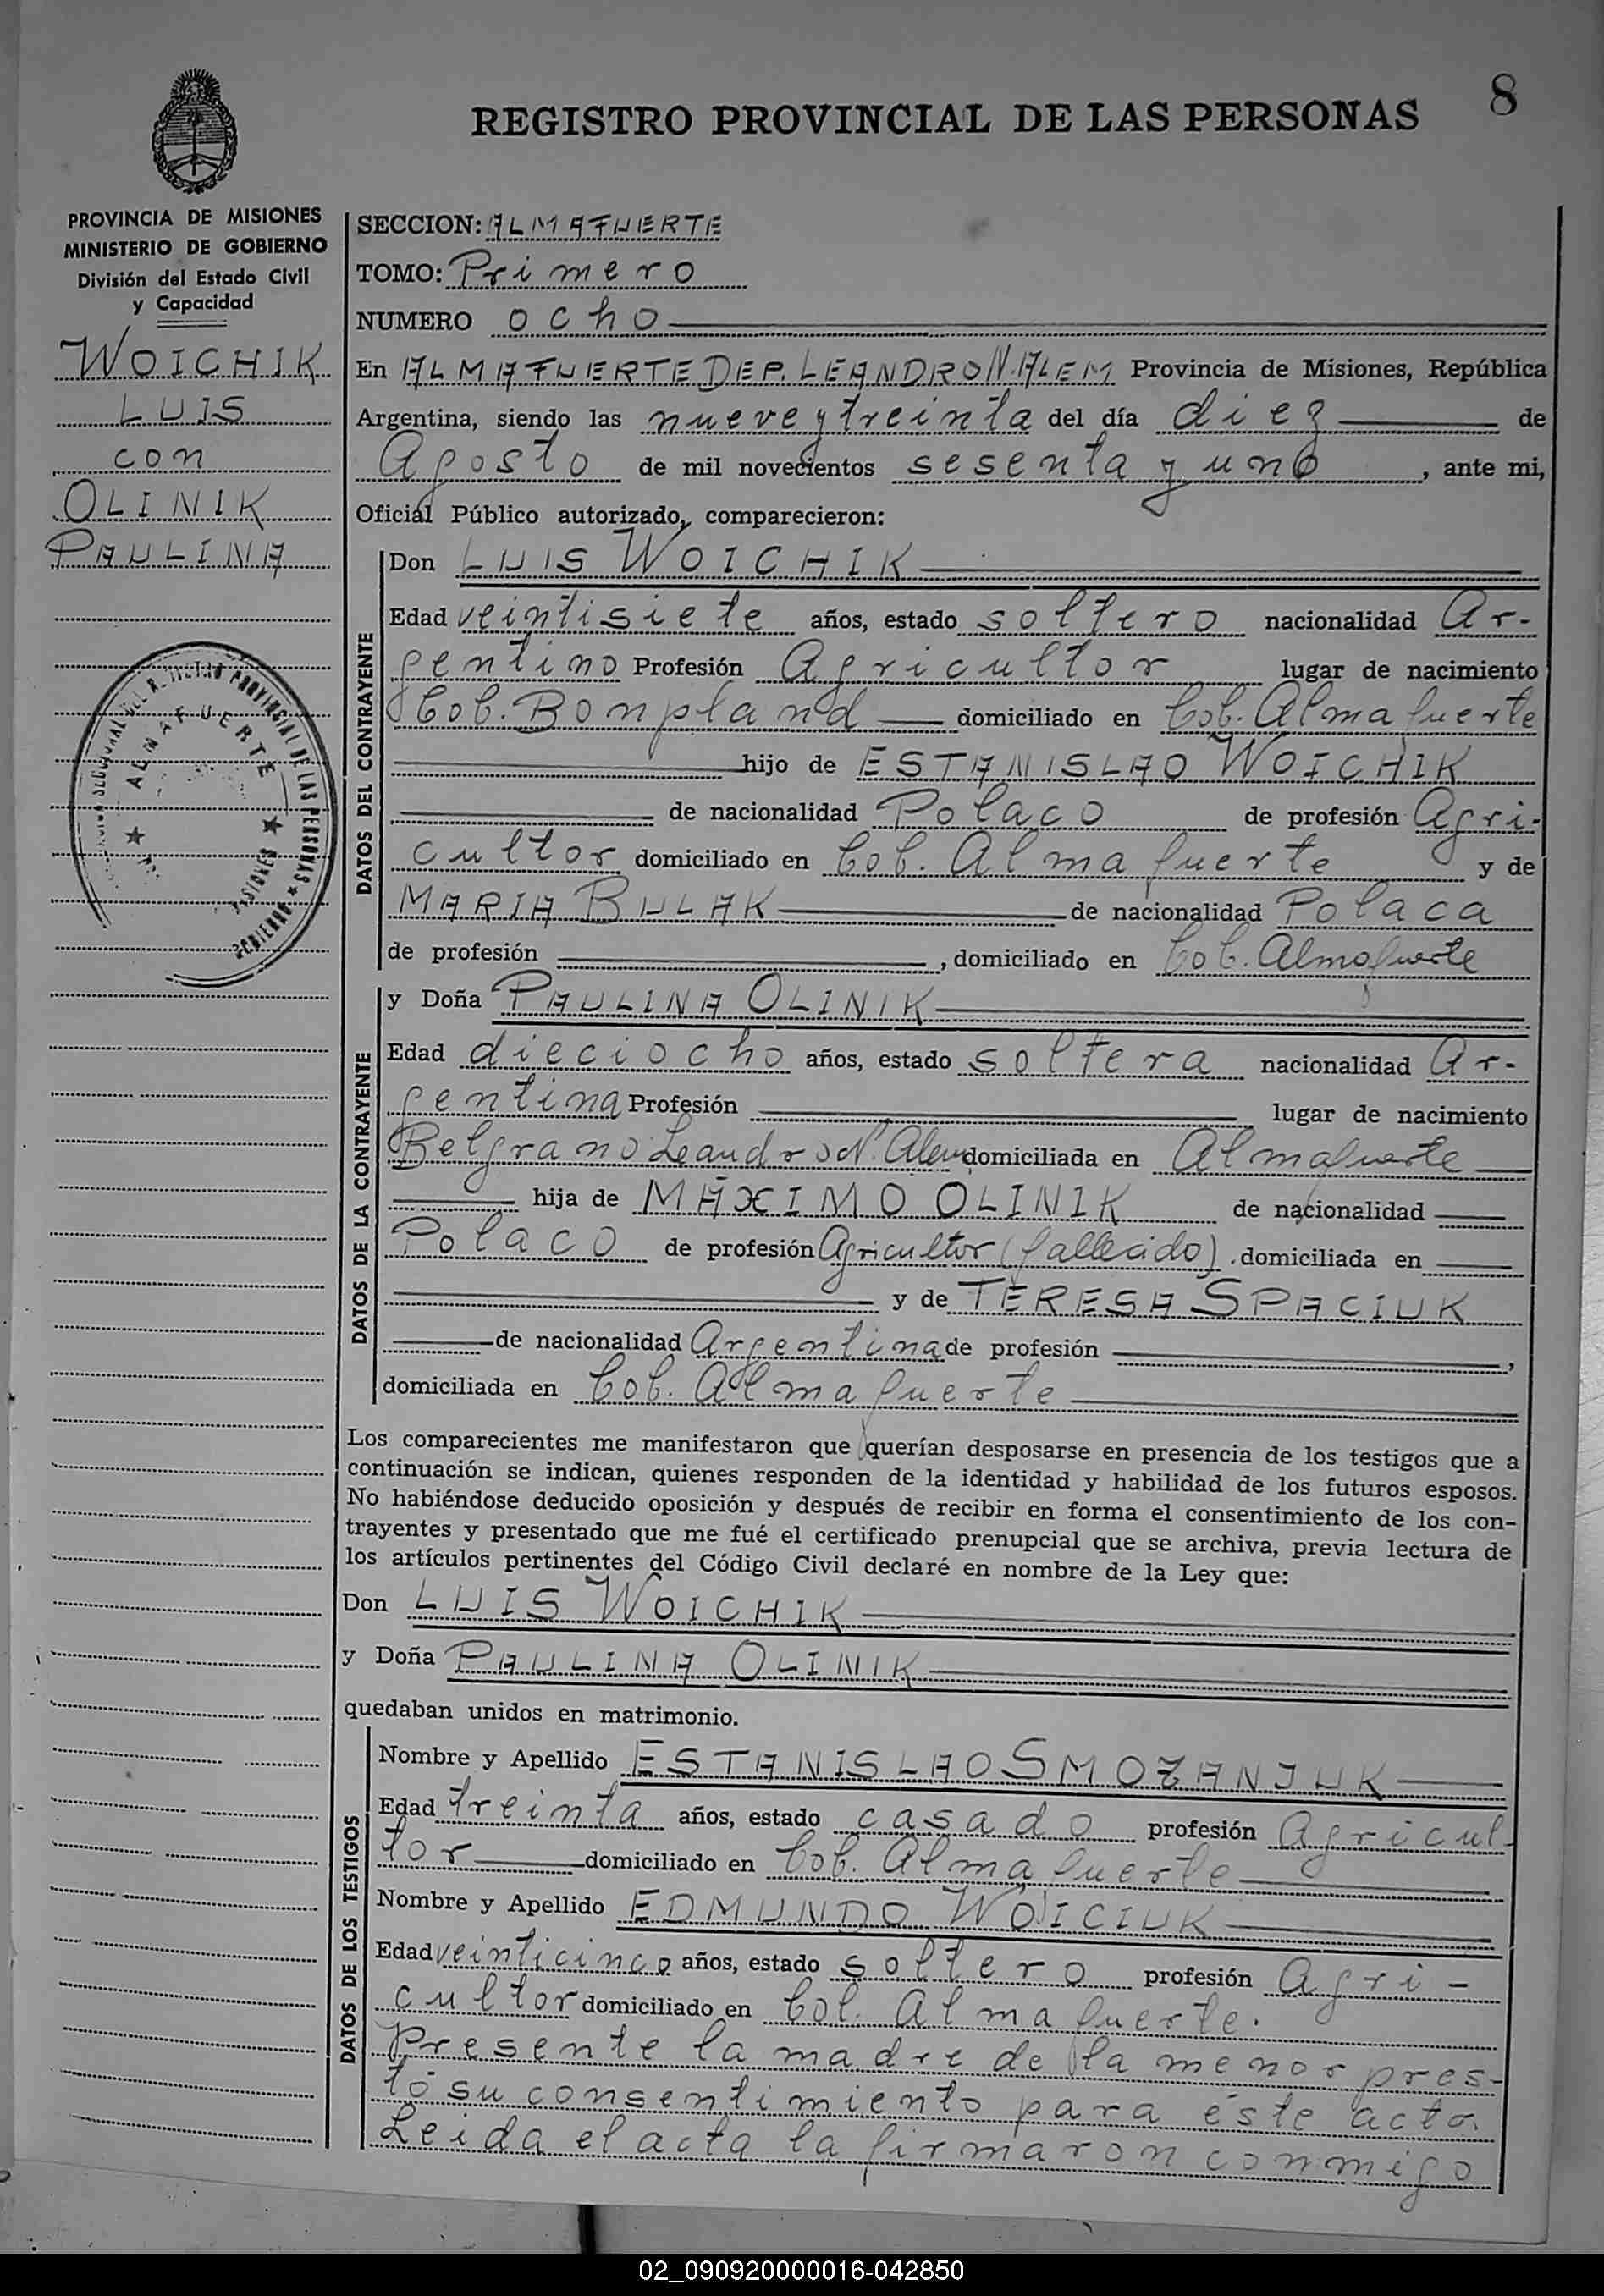 8
REGISTRO PROVINCIAL DE LAS PERSONAS
PROVINCIA DE MISIONES
MINISTERIO DE GOBIERNO
División del Estado Civil
y Capacidad
WOICHIK
LUIS
con
OLINIK
PAULINA
ALMAFUERTE
MISIONES
SECCION: ALMAFUERTE
TOMO: Primero
NUMERO ocho
En ALMAFUERTE DEP. LEANDRO N. ALEM Provincia de Misiones, República
Argentina, siendo las nueve y treinta del día diez de
Agosto de mil novecientos sesenta y uno, ante mi,
Oficial Público autorizado, comparecieron:
DATOS DEL CONTRAYENTE
Don LUIS WOICHIK
Edad veintisiete años, estado soltero nacionalidad Ar-
gentino Profesión Agricultor lugar de nacimiento
Col. Bonpland domiciliado en Col. Almafuerte
hijo de ESTANISLAO WOICHIK
de nacionalidad Polaco de profesión Agri-
cultor domiciliado en Col. Almafuerte y de
MARIA BULAK de nacionalidad Polaca
de profesión , domiciliado en Col. Almafuerte
DATOS DE LA CONTRAYENTE
y Doña PAULINA OLINIK
Edad dieciocho años, estado soltera nacionalidad Ar-
gentina Profesión lugar de nacimiento
Belgrano Leandro N. Alem domiciliada en Almafuerte
hija de MÁXIMO OLINIK de nacionalidad
Polaco de profesión Agricultor (fallecido), domiciliada en
y de TERESA SPACIUK
de nacionalidad Argentina de profesión ,
domiciliada en Col. Almafuerte
Los comparecientes me manifestaron que querían desposarse en presencia de los testigos que a
continuación se indican, quienes responden de la identidad y habilidad de los futuros esposos.
No habiéndose deducido oposición y después de recibir en forma el consentimiento de los con-
trayentes y presentado que me fué el certificado prenupcial que se archiva, previa lectura de
los artículos pertinentes del Código Civil declaré en nombre de la Ley que:
Don LUIS WOICHIK
y Doña PAULINA OLINIK
quedaban unidos en matrimonio.
DATOS DE LOS TESTIGOS
Nombre y Apellido ESTANISLAO SMOZANJUK
Edad treinta años, estado casado profesión Agricul-
tor domiciliado en Col. Almafuerte
Nombre y Apellido EDMUNDO WOICIUK
Edad veinticinco años, estado soltero profesión Agri-
cultor domiciliado en Col. Almafuerte.
Presente la madre de la menor pres-
tó su consentimiento para éste acto.
Leida el acta la firmaron conmigo
02_090920000016-042850